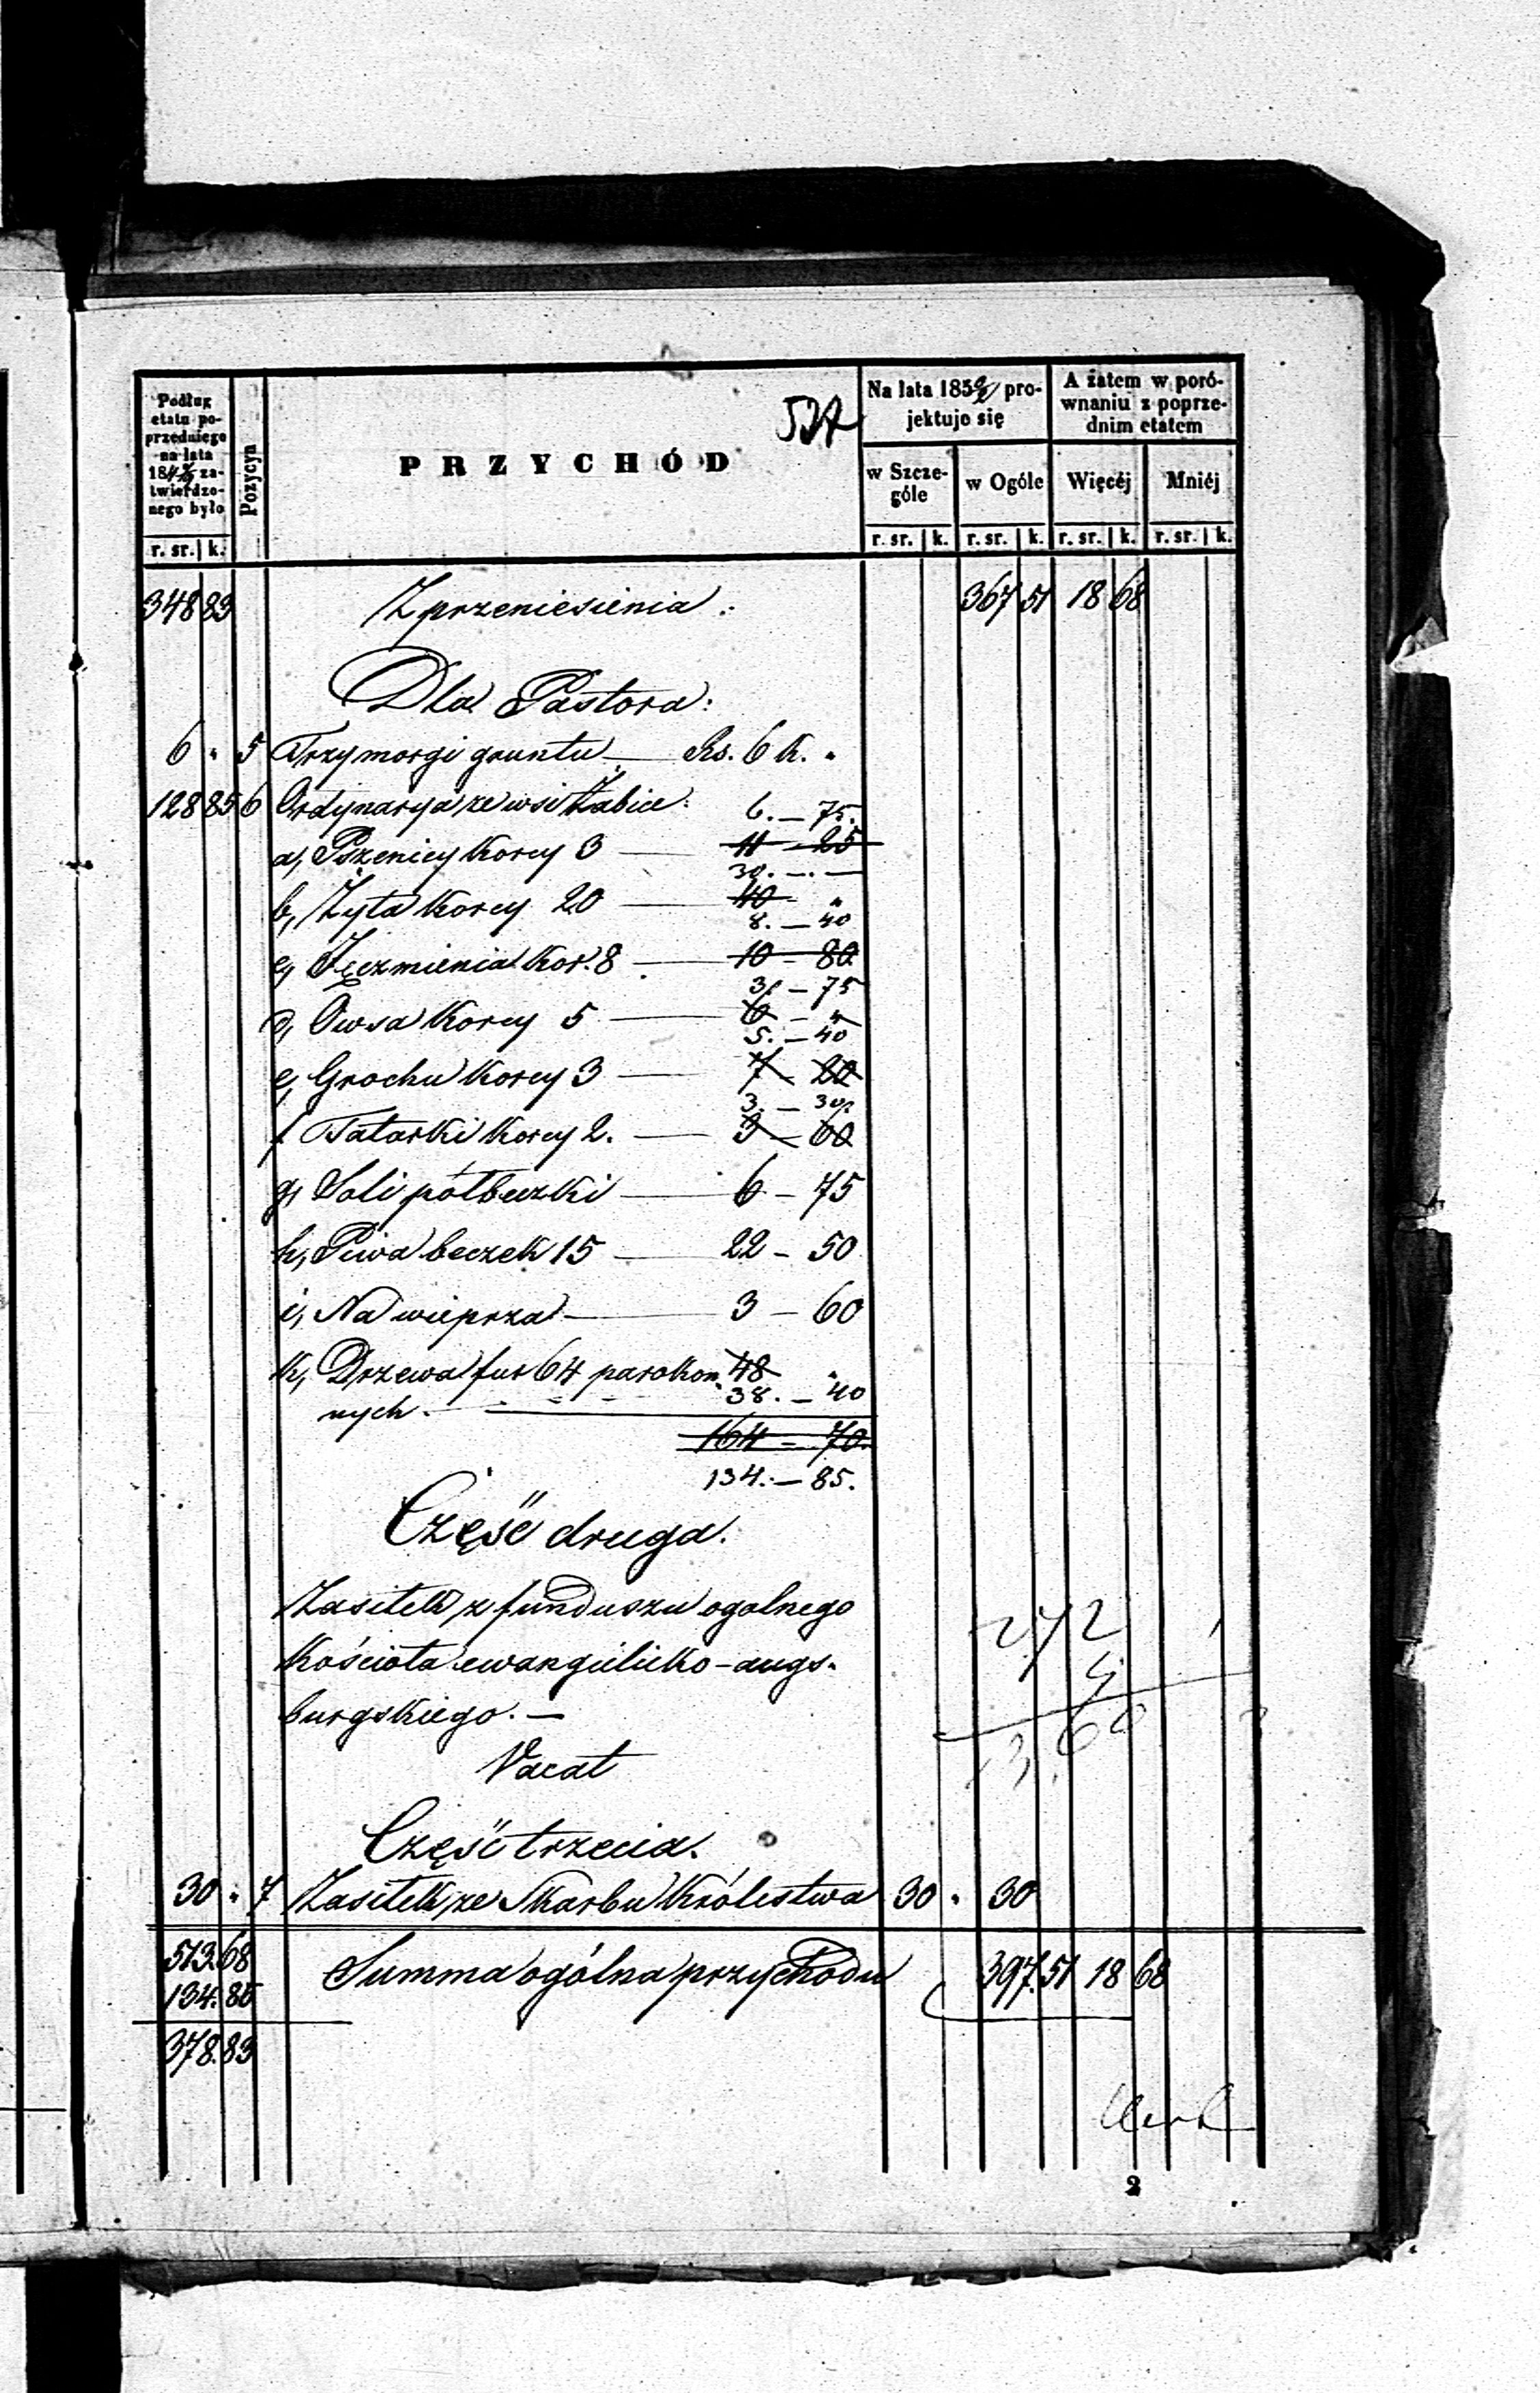 Podług etatu poprzedniego na lata 184 zatwierdzonego było
Pozycya
PRZYCHÓD
527
Na lata 185 projektuje się
A zatem w porównaniu z poprzednim etatem
w Szczególe
w Ogóle
Więcéj
Mniéj
r. sr. k. r. sr. k. r. sr. k. r. sr. k. r. sr. k.
348 83 Z przeniesienia: 367 51 18 68
Dla Pastora:
6 " 5 Trzy morgi gruntu — Rs. 6 k. "
128 85 6 Ordynarya ze wsi Żabice:
6. — 75.
a, Pszenicy korcy 3 — 11 - 25
30. — . —
b, Żyta korcy 20 — 40 "
8. — 40
c, Jęczmienia kor. 8 — 10 - 80
3. — 75
d, Owsa korcy 5 — 6 - "
5. — 40
e, Grochu korcy 3 — 7 - 20
3. — 30
f Tatarki korcy 2. — 3 - 60
g, Soli półbeczki — 6 - 75
h, Piwa beczek 15 — 22 - 50
i, Na wieprza — 3 - 60
k, Drzewa fur 64 parokon 48 "
nych. — 38. — 40
164 - 70.
134. — 85.
Część druga.
Zasiłek z funduszu ogolnego
Kościoła ewangielicko-augs-
burgskiego. —
Vacat
Część trzecia.
30 " 7 Zasiłek ze Skarbu Królestwa 30 " 30
513.68 Summa ogólna przychodu 397.51 18 68
134.85
378.83
2